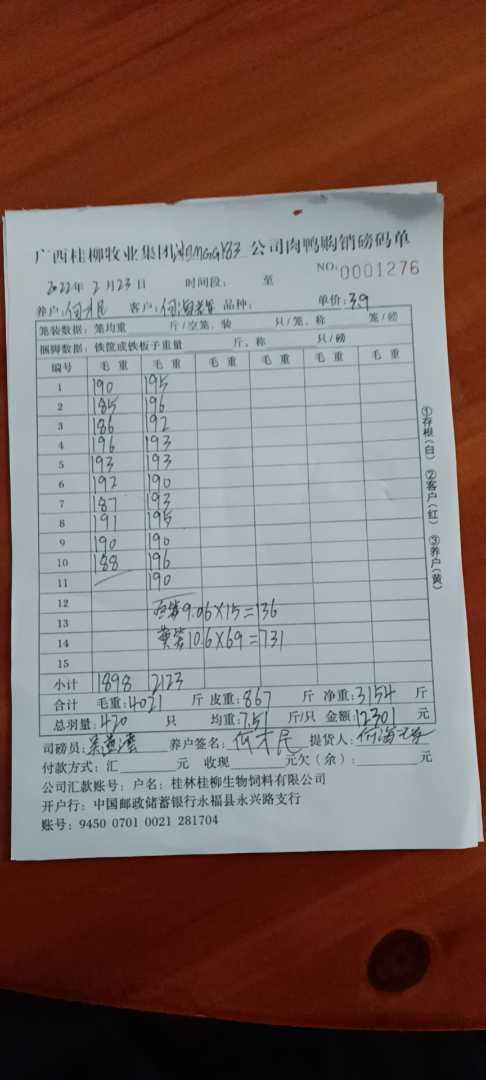 广西桂柳牧业集团 公司肉鸭购销磅码单
NO:0001276
2022年2月23日 时间段: 至
养户:何才民 客户:何海 品种: 单价:3.9
笼装数据:笼均重 斤/空笼、装 只/笼、称 笼/磅
捆脚数据:铁筐或铁板子重量 斤,称 只/磅
编号 毛 重 毛 重 毛 重 毛 重 毛 重 毛 重
1 190 195
2 185 196
3 186 192
4 196 193
5 193 193
6 192 190
7 187 93
8 191 195
9 190 190
10 188 196
11 190
12 9.06×15=136
13 黄笼10.6×69=731
14
15
小计 1898 2123
合计 毛重:4021 斤 皮重:867 斤 净重:3154 斤
总羽量:420 只 均重:7.51 斤/只 金额:12301 元
司磅员: 养户签名:何才民 提货人:何海
付款方式:汇 元 收现 元欠(余): 元
公司汇款账号:户名:桂林桂柳生物饲料有限公司
开户行:中国邮政储蓄银行永福县永兴路支行
账号:9450 0701 0021 281704
①存根(白) ②客户(红) ③养户(黄)